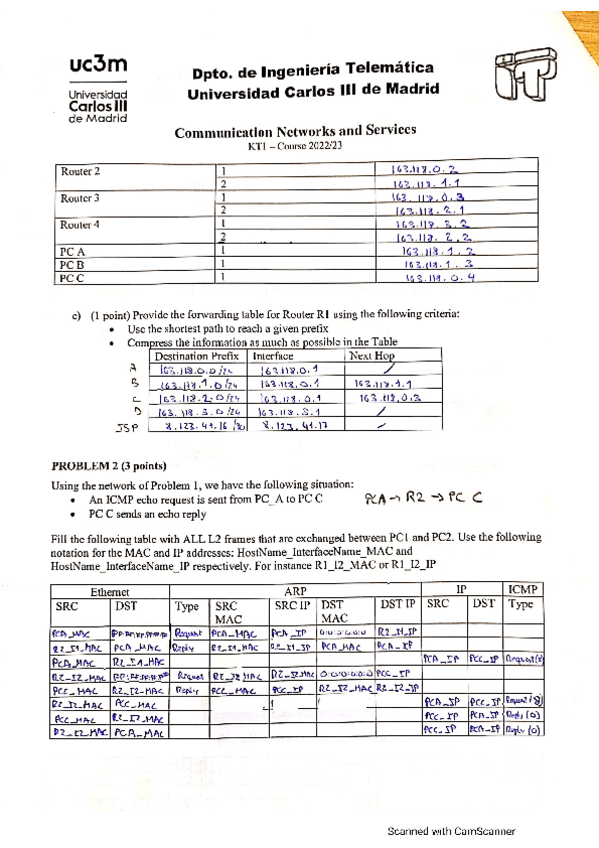 uc3m
Universidad
Carlos III
de Madrid
Dpto. de Ingeniería Telemática
Universidad Carlos III de Madrid
Communication Networks and Services
KT1 – Course 2022/23
Router 2 1 163.118.0.2
2 163.118.1.1
Router 3 1 163.118.0.3
2 163.118.2.1
Router 4 1 163.118.3.2
2 163.118.2.2
PC A 1 163.118.1.2
PC B 1 163.118.1.3
PC C 1 163.118.0.4
c) (1 point) Provide the forwarding table for Router R1 using the following criteria:
• Use the shortest path to reach a given prefix
• Compress the information as much as possible in the Table
Destination Prefix Interface Next Hop
A 163.118.0.0/24 163.118.0.1 /
B 163.118.1.0/24 163.118.0.1 163.118.1.1
C 163.118.2.0/24 163.118.0.1 163.118.0.3
D 163.118.3.0/24 163.118.3.1 /
ISP 8.123.41.16/30 8.123.41.17 /
PROBLEM 2 (3 points)
Using the network of Problem 1, we have the following situation:
• An ICMP echo request is sent from PC_A to PC C PCA → R2 → PC C
• PC C sends an echo reply
Fill the following table with ALL L2 frames that are exchanged between PC1 and PC2. Use the following
notation for the MAC and IP addresses: HostName_InterfaceName_MAC and
HostName_InterfaceName_IP respectively. For instance R1_I2_MAC or R1_I2_IP
Ethernet ARP IP ICMP
SRC DST Type SRC MAC SRC IP DST MAC DST IP SRC DST Type
PCA_MAC FF:FF:FF:FF:FF:FF Request PCA_MAC PCA_IP 0:0:0:0:0:0 R2_I1_IP
R2_I1_MAC PCA_MAC Reply R2_I1_MAC R2_I1_IP PCA_MAC PCA_IP
PCA_MAC R2_I1_MAC PCA_IP PCC_IP Request(8)
R2_I2_MAC FF:FF:FF:FF:FF:FF Request R2_I2_MAC R2_I2_MAC 0:0:0:0:0:0 PCC_IP
PCC_MAC R2_I2_MAC Reply PCC_MAC PCC_IP R2_I2_MAC R2_I2_IP
R2_I2_MAC PCC_MAC PCA_IP PCC_IP Request(8)
PCC_MAC R2_I2_MAC PCC_IP PCA_IP Reply(0)
R2_I2_MAC PCA_MAC PCC_IP PCA_IP Reply(0)
Scanned with CamScanner